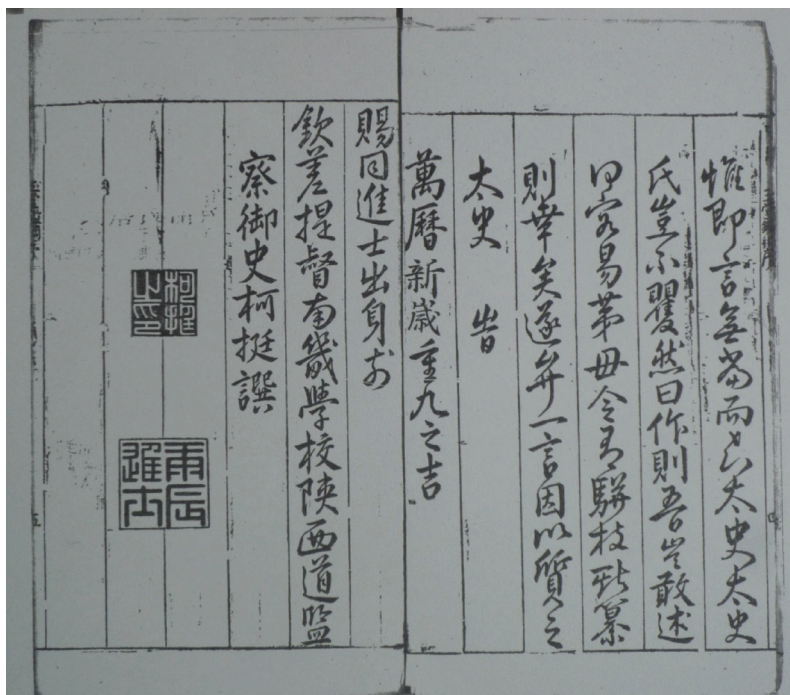 惟即言無當而太史太史
氏豈不矍然曰作則吾豈敢述
曰容易第毋令駢枝斯纂
則幸矣遂弁一言因以質之
太史 旹
萬曆新歲重九之吉
賜同進士出身前
欽差提督南畿學校陝西道監
察御史柯挺譔
柯挺之印
庚辰進士